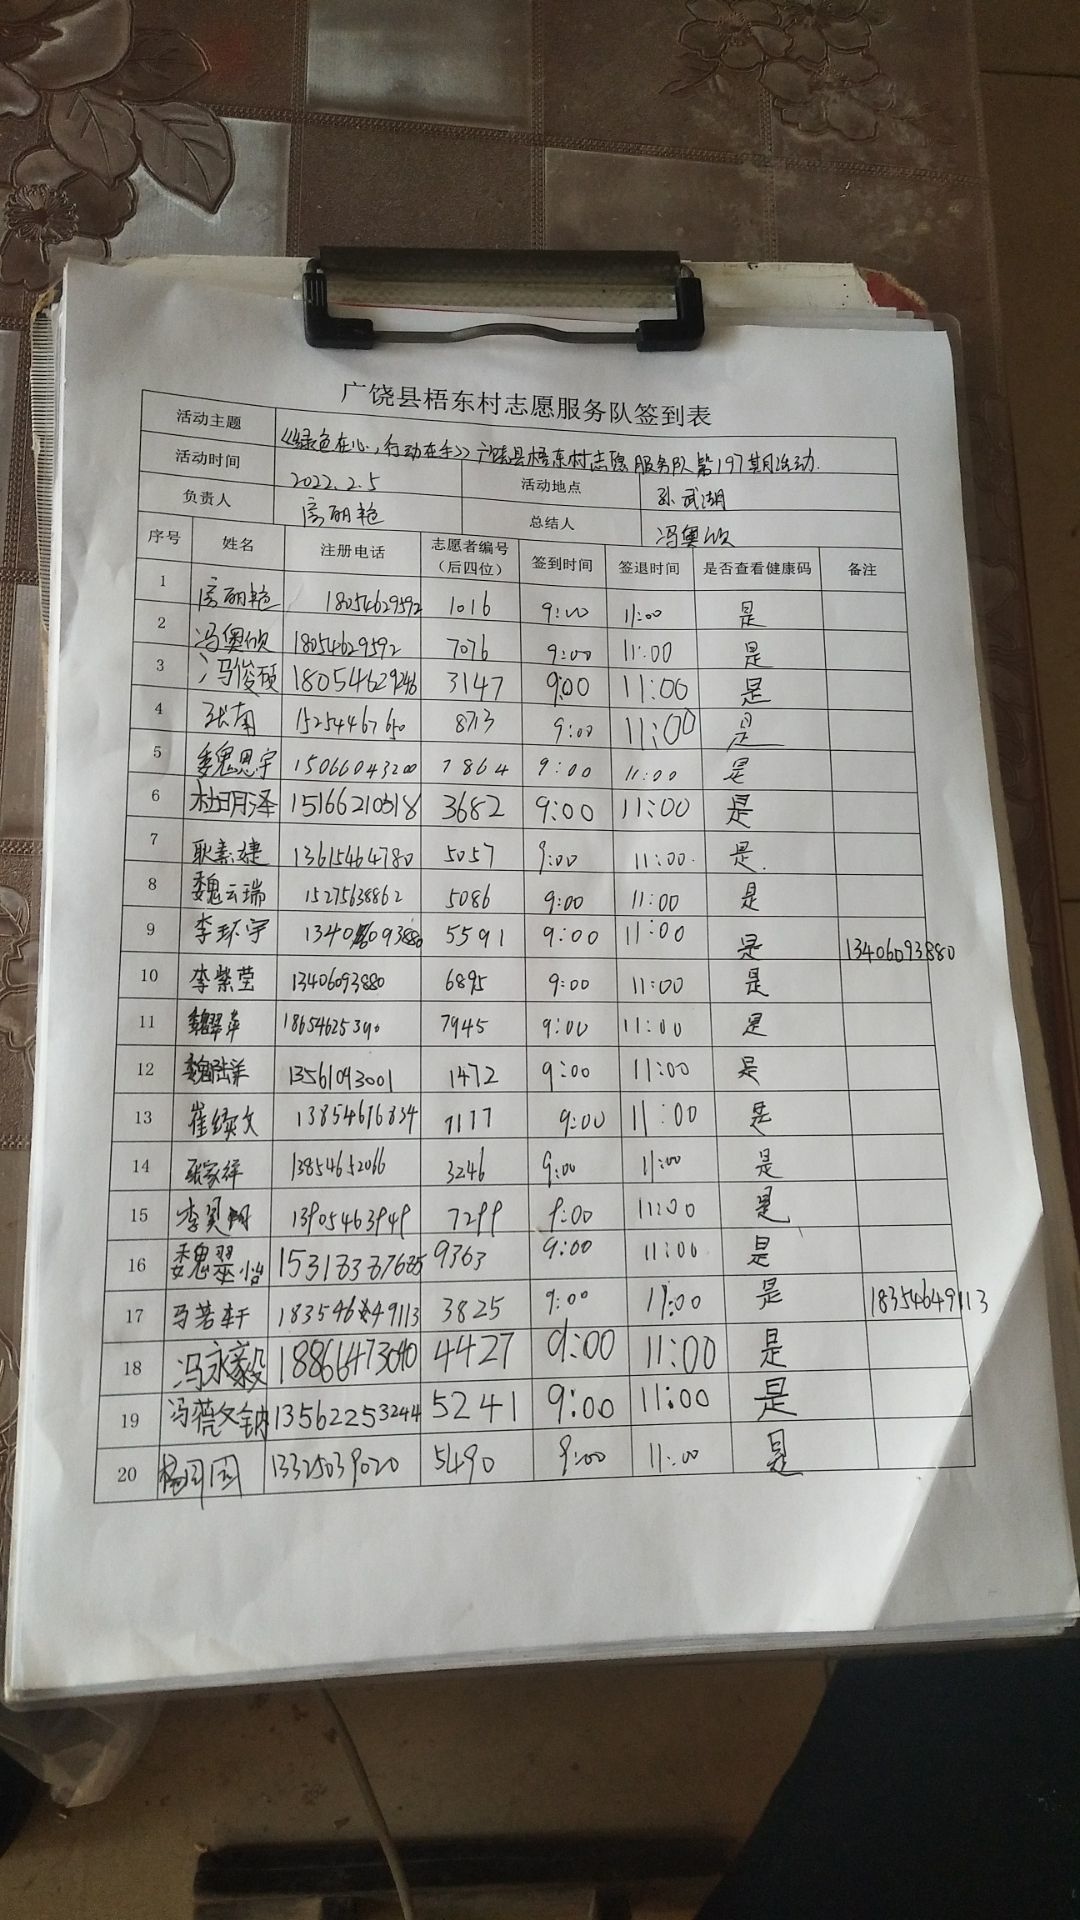 广饶县梧东村志愿服务队签到表
活动主题 《绿色在心,行动在手》广饶县梧东村志愿服务队第197期活动.
活动时间 2022.2.5 活动地点 孙武湖
负责人 房丽艳 总结人 冯奥欣
序号 姓名 注册电话 志愿者编号(后四位) 签到时间 签退时间 是否查看健康码 备注
1 房丽艳 18054629592 1016 9:00 11:00 是
2 冯奥欣 18054629592 7076 9:00 11:00 是
3 冯俊硕 18054629246 3147 9:00 11:00 是
4 张南 15254467650 8713 9:00 11:00 是
5 魏恩宇 15066043200 7864 9:00 11:00 是
6 杜明泽 15166210318 3682 9:00 11:00 是
7 耿素婕 13615464780 5057 9:00 11:00. 是.
8 魏云瑞 15275638862 5086 9:00 11:00 是
9 李环宇 13406093880 5591 9:00 11:00 是 13406093880
10 李紫莹 13406093880 6895 9:00 11:00 是
11 18654625390 7945 9:00 11:00 是
12 13561093001 1472 9:00 11:00 是
13 崔续文 13854676834 7177 9:00 11:00 是
14 张家祥 13854652066 3246 9:00 11:00 是
15 13905463949 7299 9:00 11:00 是
16 魏翠怡 9363 9:00 11:00 是
17 马若轩 18354649113 3825 9:00 11:00 是 18354649113
18 冯永毅 18866473040 4427 9:00 11:00 是
19 13562253244 5241 9:00 11:00 是
20 杨园园 13325039020 5490 9:00 11:00 是